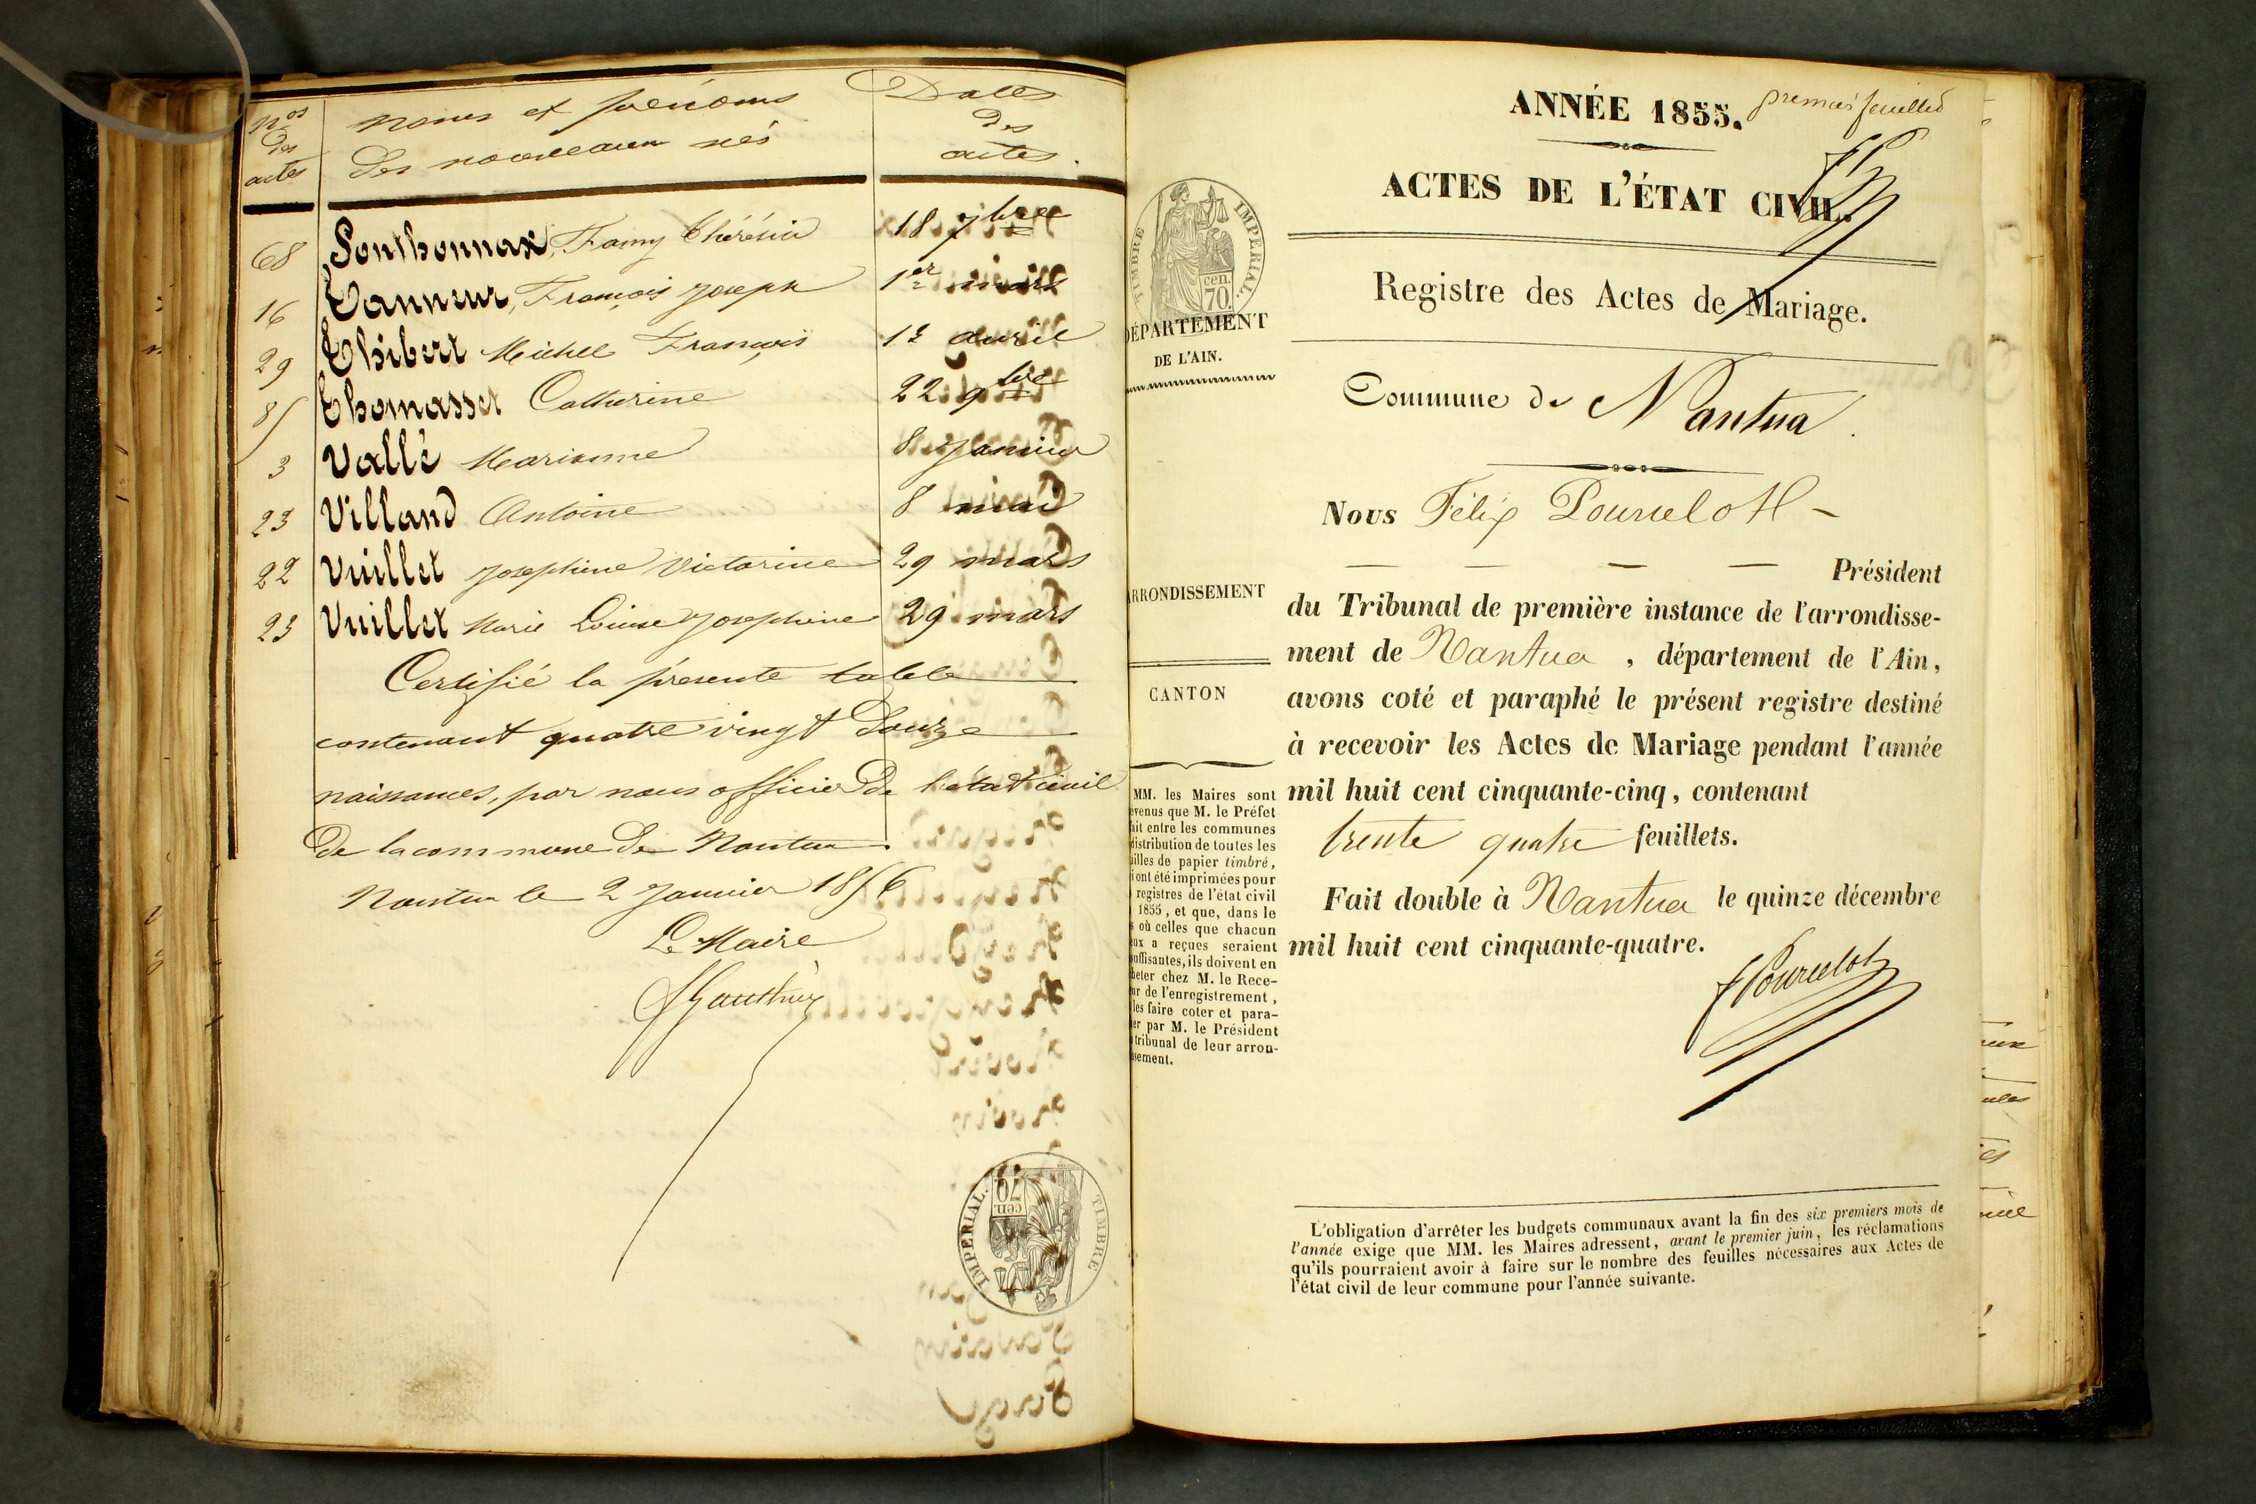 Nos des actes
noms et prénoms des nouveaux nés
Dates des actes.
68 Sonthonnax, Fanny Thérésia 18 7bre
16 Tanneur, François Joseph 1er mars
29 Thibert Michel François 13 avril
85 Thomasset Catherine 22 9bre
3 Vallé Marianne 8 janvier
23 Villand Antoine 8 mai
22 Vuillet Josephine Victorine 29 mars
23 Vuillet Marie Louise Josephine 29 mars
Certifié la présente table
contenant quatre vingt douze
naissances, par nous officier de l'état civil
de la commune de Nantua.
Nantua le 2 Janvier 1856
Le Maire
Gauthier
TIMBRE IMPERIAL.
70 cen.
premier feuillet
ANNÉE 1855.
ACTES DE L'ÉTAT CIVIL.
Registre des Actes de Mariage.
Commune de Nantua.
Nous Félix Pourcelot
Président
du Tribunal de première instance de l'arrondisse-
ment de Nantua, département de l'Ain,
avons coté et paraphé le présent registre destiné
à recevoir les Actes de Mariage pendant l'année
mil huit cent cinquante-cinq, contenant
trente quatre feuillets.
Fait double à Nantua le quinze décembre
mil huit cent cinquante-quatre.
F Pourcelot
L'obligation d'arrêter les budgets communaux avant la fin des six premiers mois de
l'année exige que MM. les Maires adressent, avant le premier juin, les réclamations
qu'ils pourraient avoir à faire sur le nombre des feuilles nécessaires aux Actes de
l'état civil de leur commune pour l'année suivante.
TIMBRE IMPERIAL.
cen. 70.
DÉPARTEMENT
DE L'AIN.
ARRONDISSEMENT
CANTON
MM. les Maires sont
evenus que M. le Préfet
ait entre les communes
distribution de toutes les
uilles de papier timbré,
i ont été imprimées pour
registres de l'état civil
1855, et que, dans le
s où celles que chacun
eux a reçues seraient
uffisantes, ils doivent en
heter chez M. le Rece-
ur de l'enregistrement,
les faire coter et para-
er par M. le Président
tribunal de leur arron-
ssement.